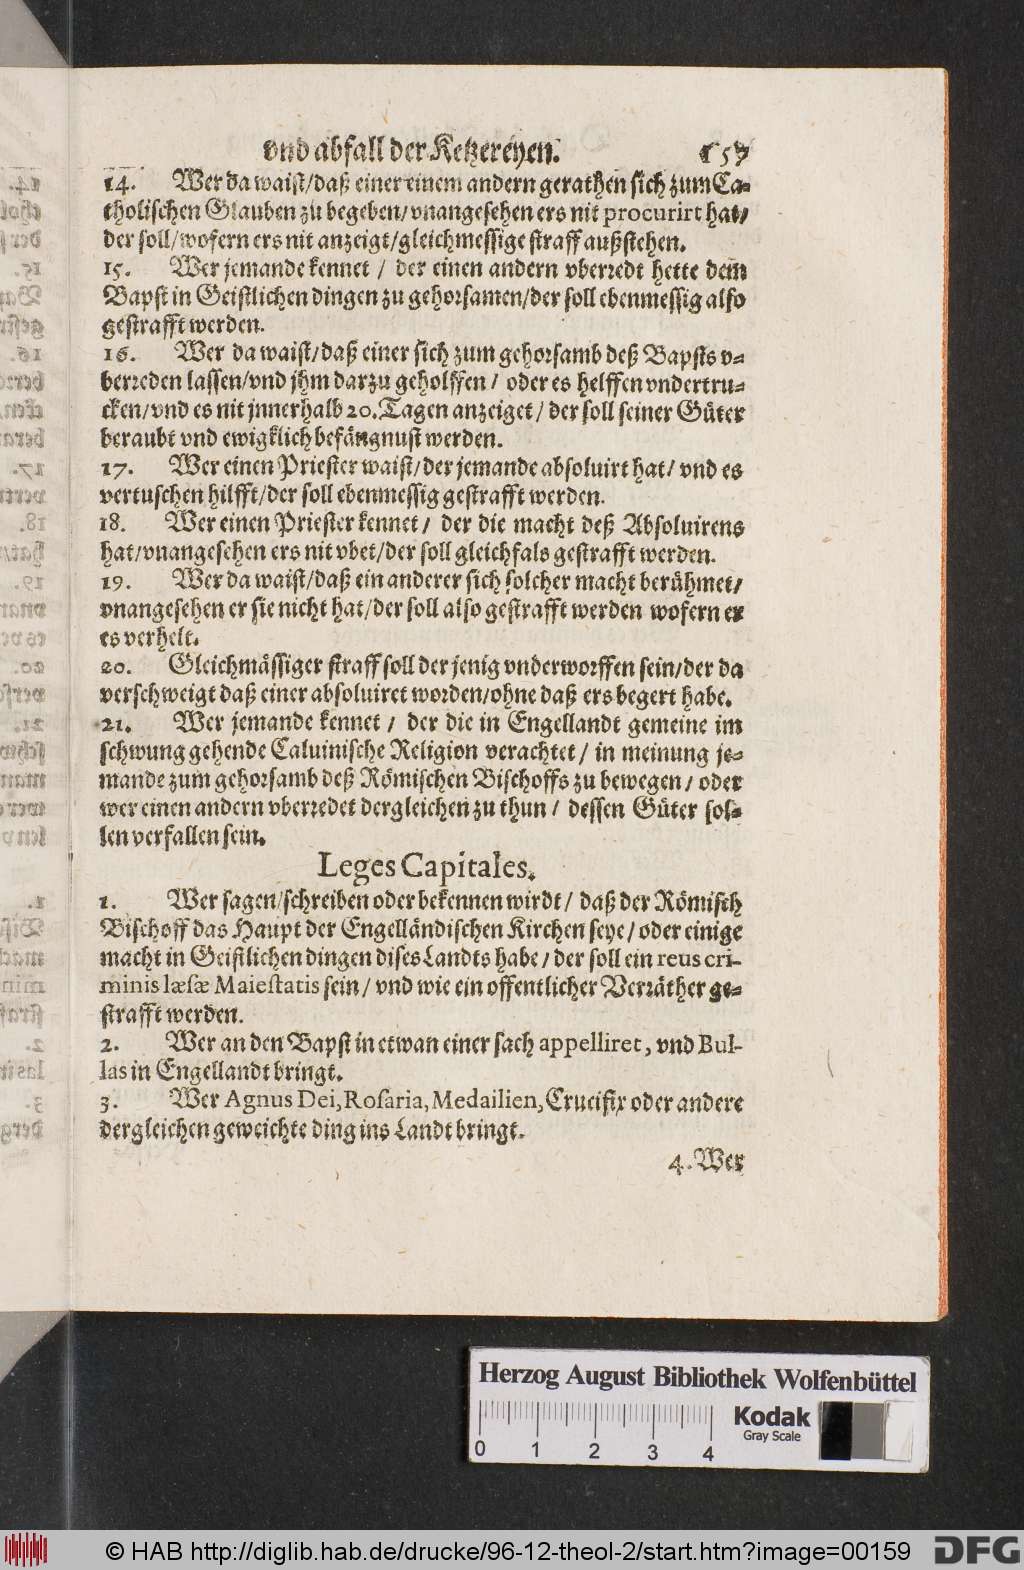 vnd abfall der Ketzereyen. 157
14. Wer da waist/daß einer einem andern gerathen sich zum Ca-
tholischen Glauben zu begeben/vnangesehen ers nit procurirt hat/
der soll/wofern ers nit anzeigt/gleichmessige straff außstehen.
15. Wer jemande kennet / der einen andern vberredt hette dem
Bapst in Geistlichen dingen zu gehorsamen/der soll ebenmessig also
gestrafft werden.
16. Wer da waist/daß einer sich zum gehorsamb deß Bapsts v-
berreden lassen/vnd jhm darzu geholffen / oder es helffen vndertru-
cken/vnd es nit jnnerhalb 20. Tagen anzeiget / der soll seiner Güter
beraubt vnd ewigklich befängnust werden.
17. Wer einen Priester waist/der jemande absoluirt hat/ vnd es
vertuschen hilfft/der soll ebenmessig gestrafft werden.
18. Wer einen Priester kennet / der die macht deß Absoluirens
hat/vnangesehen ers nit vbet/der soll gleichfals gestrafft werden.
19. Wer da waist/daß ein anderer sich solcher macht berühmet/
vnangesehen er sie nicht hat/der soll also gestrafft werden wofern er
es verhelt.
20. Gleichmässiger straff soll der jenig vnderworffen sein/der da
verschweigt daß einer absoluiret worden/ohne daß ers begert habe.
21. Wer jemande kennet / der die in Engellandt gemeine im
schwung gehende Caluinische Religion verachtet / in meinung je-
mande zum gehorsamb deß Römischen Bischoffs zu bewegen / oder
wer einen andern vberredet dergleichen zu thun / dessen Güter sol-
len verfallen sein.
Leges Capitales.
1. Wer sagen/schreiben oder bekennen wirdt / daß der Römisch
Bischoff das Haupt der Engelländischen Kirchen seye / oder einige
macht in Geistlichen dingen dises Landts habe / der soll ein reus cri-
minis læsæ Maiestatis sein / vnd wie ein offentlicher Verräther ge-
strafft werden.
2. Wer an den Bapst in etwan einer sach appelliret, vnd Bul-
las in Engellandt bringt.
3. Wer Agnus Dei, Rosaria, Medailien, Crucifix oder andere
dergleichen geweichte ding ins Landt bringt.
4. Wer
Herzog August Bibliothek Wolfenbüttel
0 1 2 3 4
Kodak
Gray Scale
© HAB http://diglib.hab.de/drucke/96-12-theol-2/start.htm?image=00159
DFG